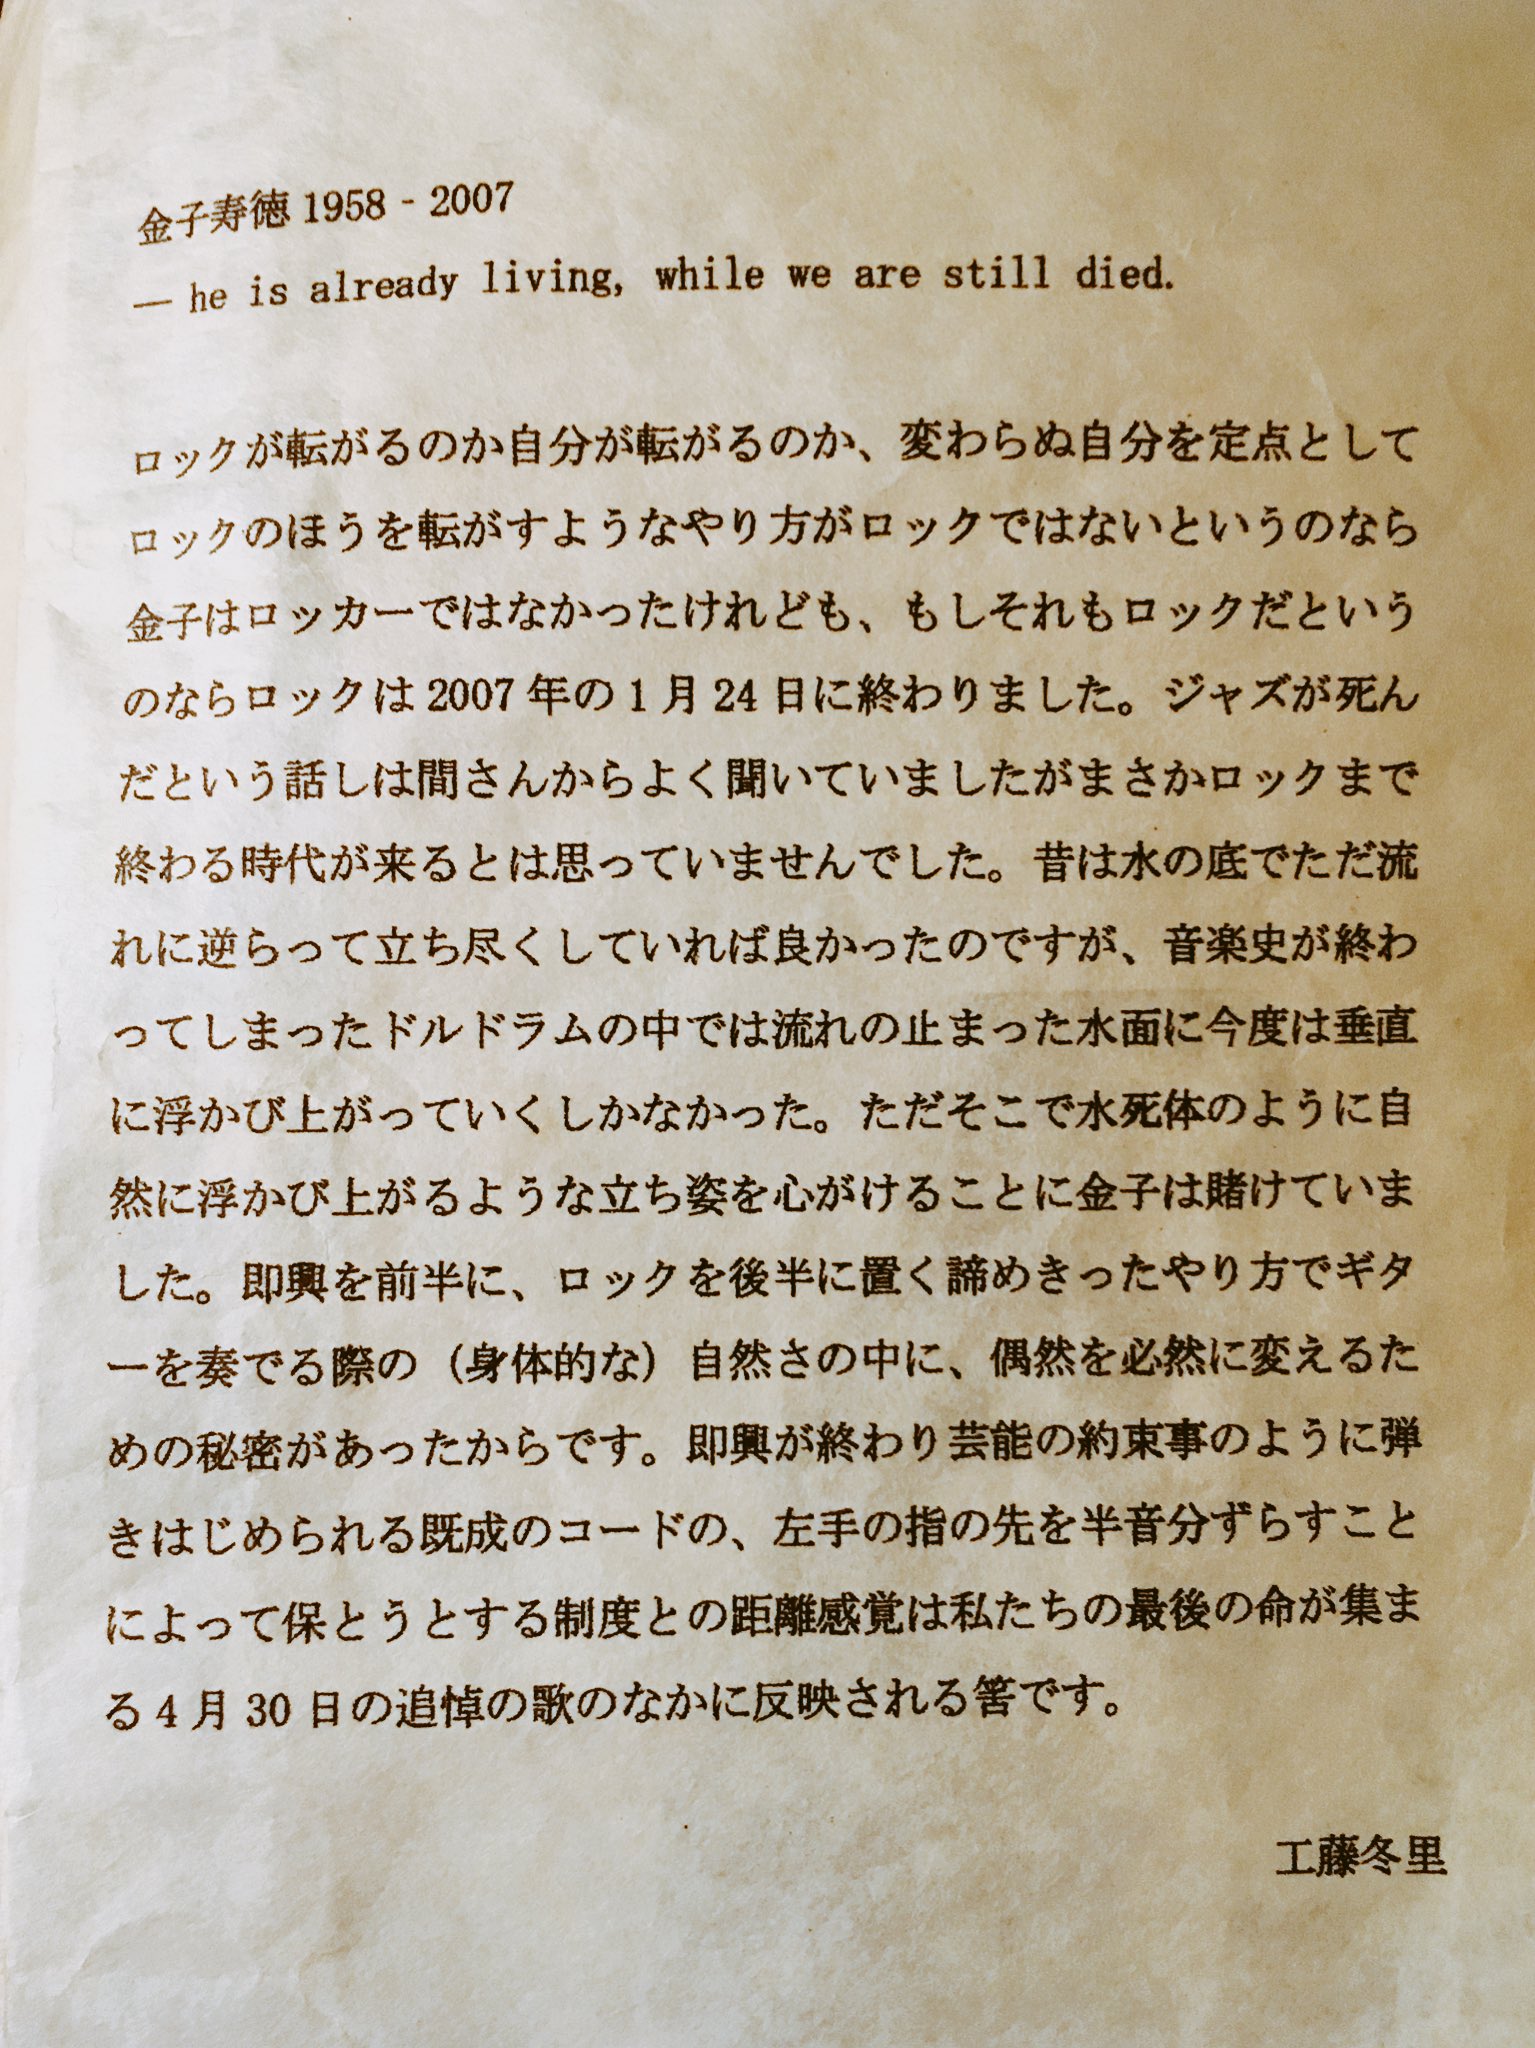 金子寿徳 1958 - 2007
― he is already living, while we are still died.
ロックが転がるのか自分が転がるのか、変わらぬ自分を定点として
ロックのほうを転がすようなやり方がロックではないというのなら
金子はロッカーではなかったけれども、もしそれもロックだという
のならロックは 2007 年の 1 月 24 日に終わりました。ジャズが死ん
だという話しは間さんからよく聞いていましたがまさかロックまで
終わる時代が来るとは思っていませんでした。昔は水の底でただ流
れに逆らって立ち尽くしていれば良かったのですが、音楽史が終わ
ってしまったドルドラムの中では流れの止まった水面に今度は垂直
に浮かび上がっていくしかなかった。ただそこで水死体のように自
然に浮かび上がるような立ち姿を心がけることに金子は賭けていま
した。即興を前半に、ロックを後半に置く諦めきったやり方でギタ
ーを奏でる際の（身体的な）自然さの中に、偶然を必然に変えるた
めの秘密があったからです。即興が終わり芸能の約束事のように弾
きはじめられる既成のコードの、左手の指の先を半音分ずらすこと
によって保とうとする制度との距離感覚は私たちの最後の命が集ま
る 4 月 30 日の追悼の歌のなかに反映される筈です。
工藤冬里